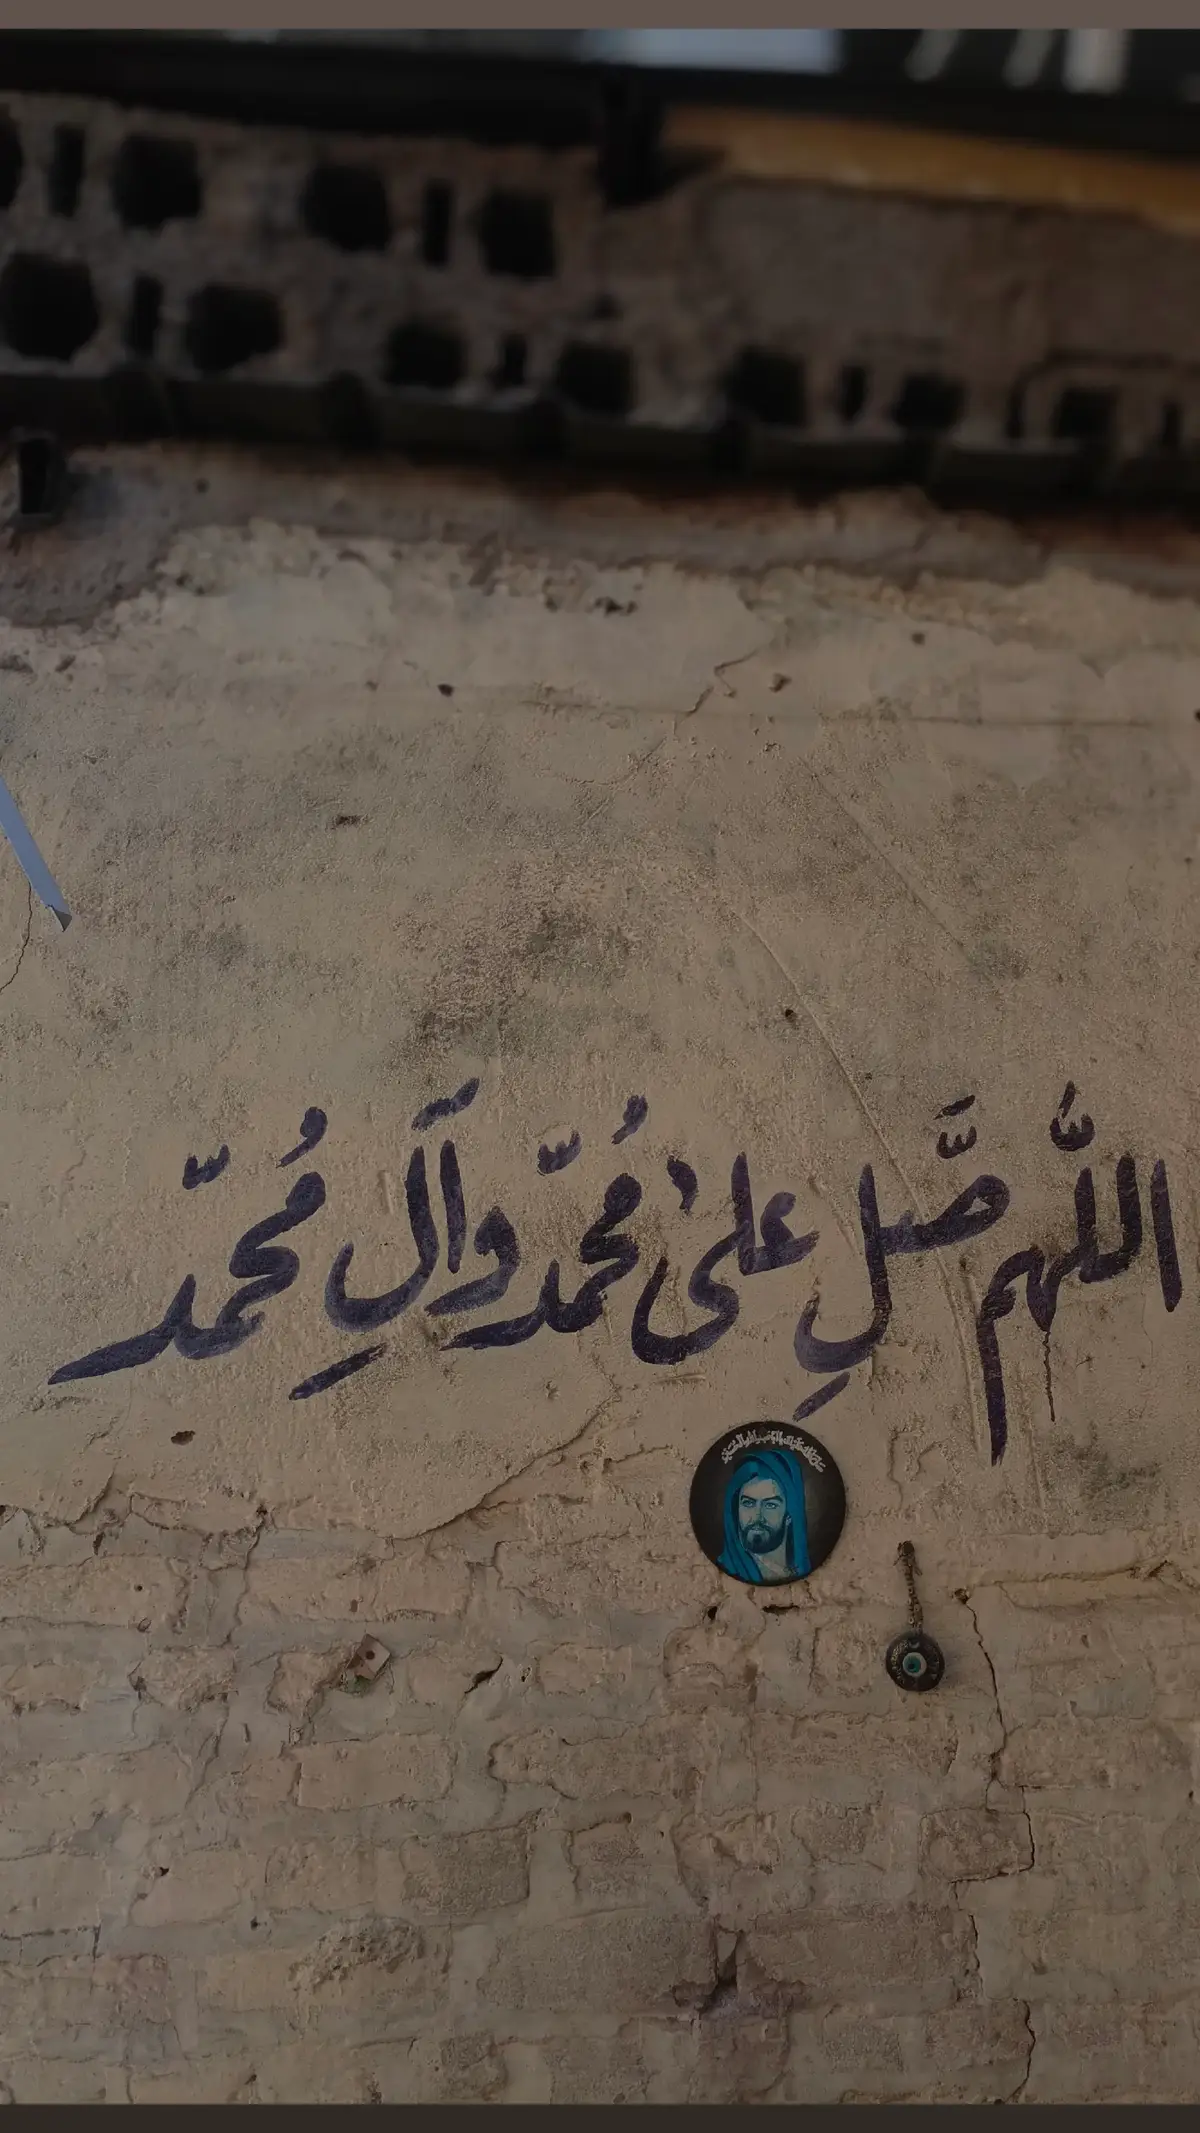 اللّٰهم صَّلِ علىٰ مُحمّد وآلِ مُحمّد